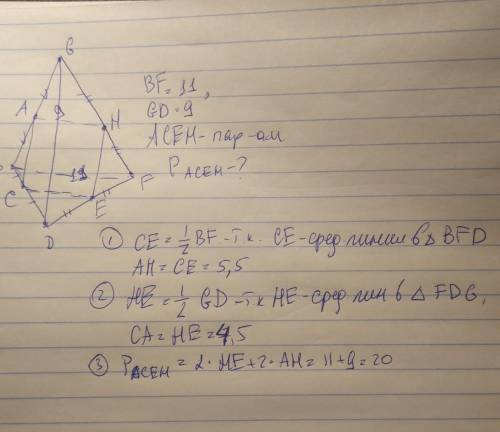 G
BF = 11,
GD = 9
A
9
H
ACEH - пар-ам
11
F
P ACEH - ?
C
E
D
① CE = 1/2 BF - т.к. CE - сред. линия в △ BFD
AH = CE = 5,5
② HE = 1/2 GD - т.к HE - сред лин в △ FDG,
CA = HE = 4,5
③ P ACEH = 2 · HE + 2 · AH = 11 + 9 = 20